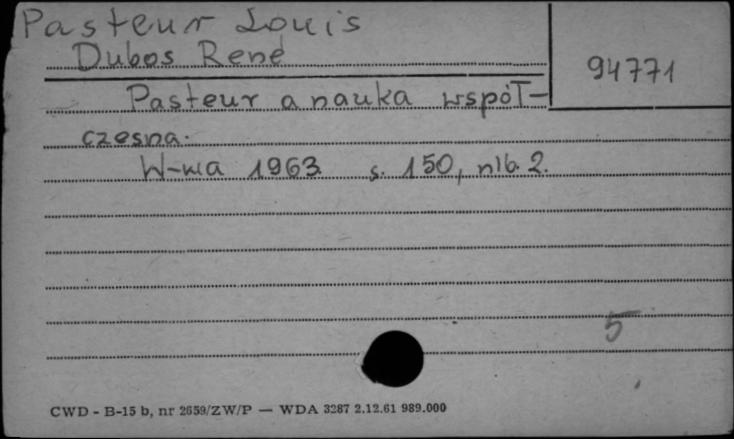 Pasteur Louis
Dubos René
94771
Pasteur a nauka współ-
czesna.
W-wa 1963. s. 150, nlb. 2.
5
CWD - B-15 b, nr 2659/ZW/P — WDA 3287 2.12.61 989.000